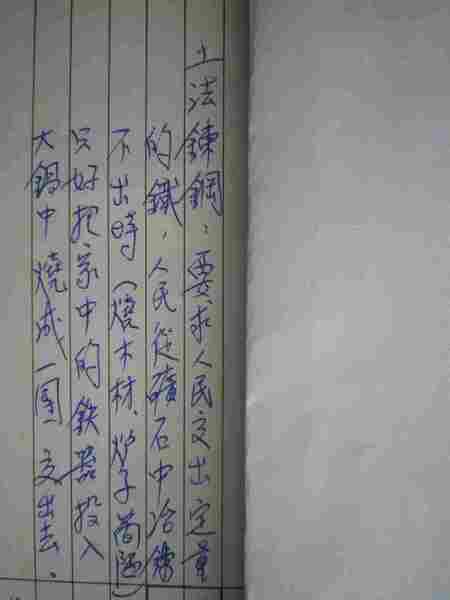 土法鍊鋼：要求人民交出定量
的鐵，人民從礦石中冶鍊
不出時（燒木材、炉子簡陋）
只好把家中的鉄器投入
大鍋中燒成一團交出去．